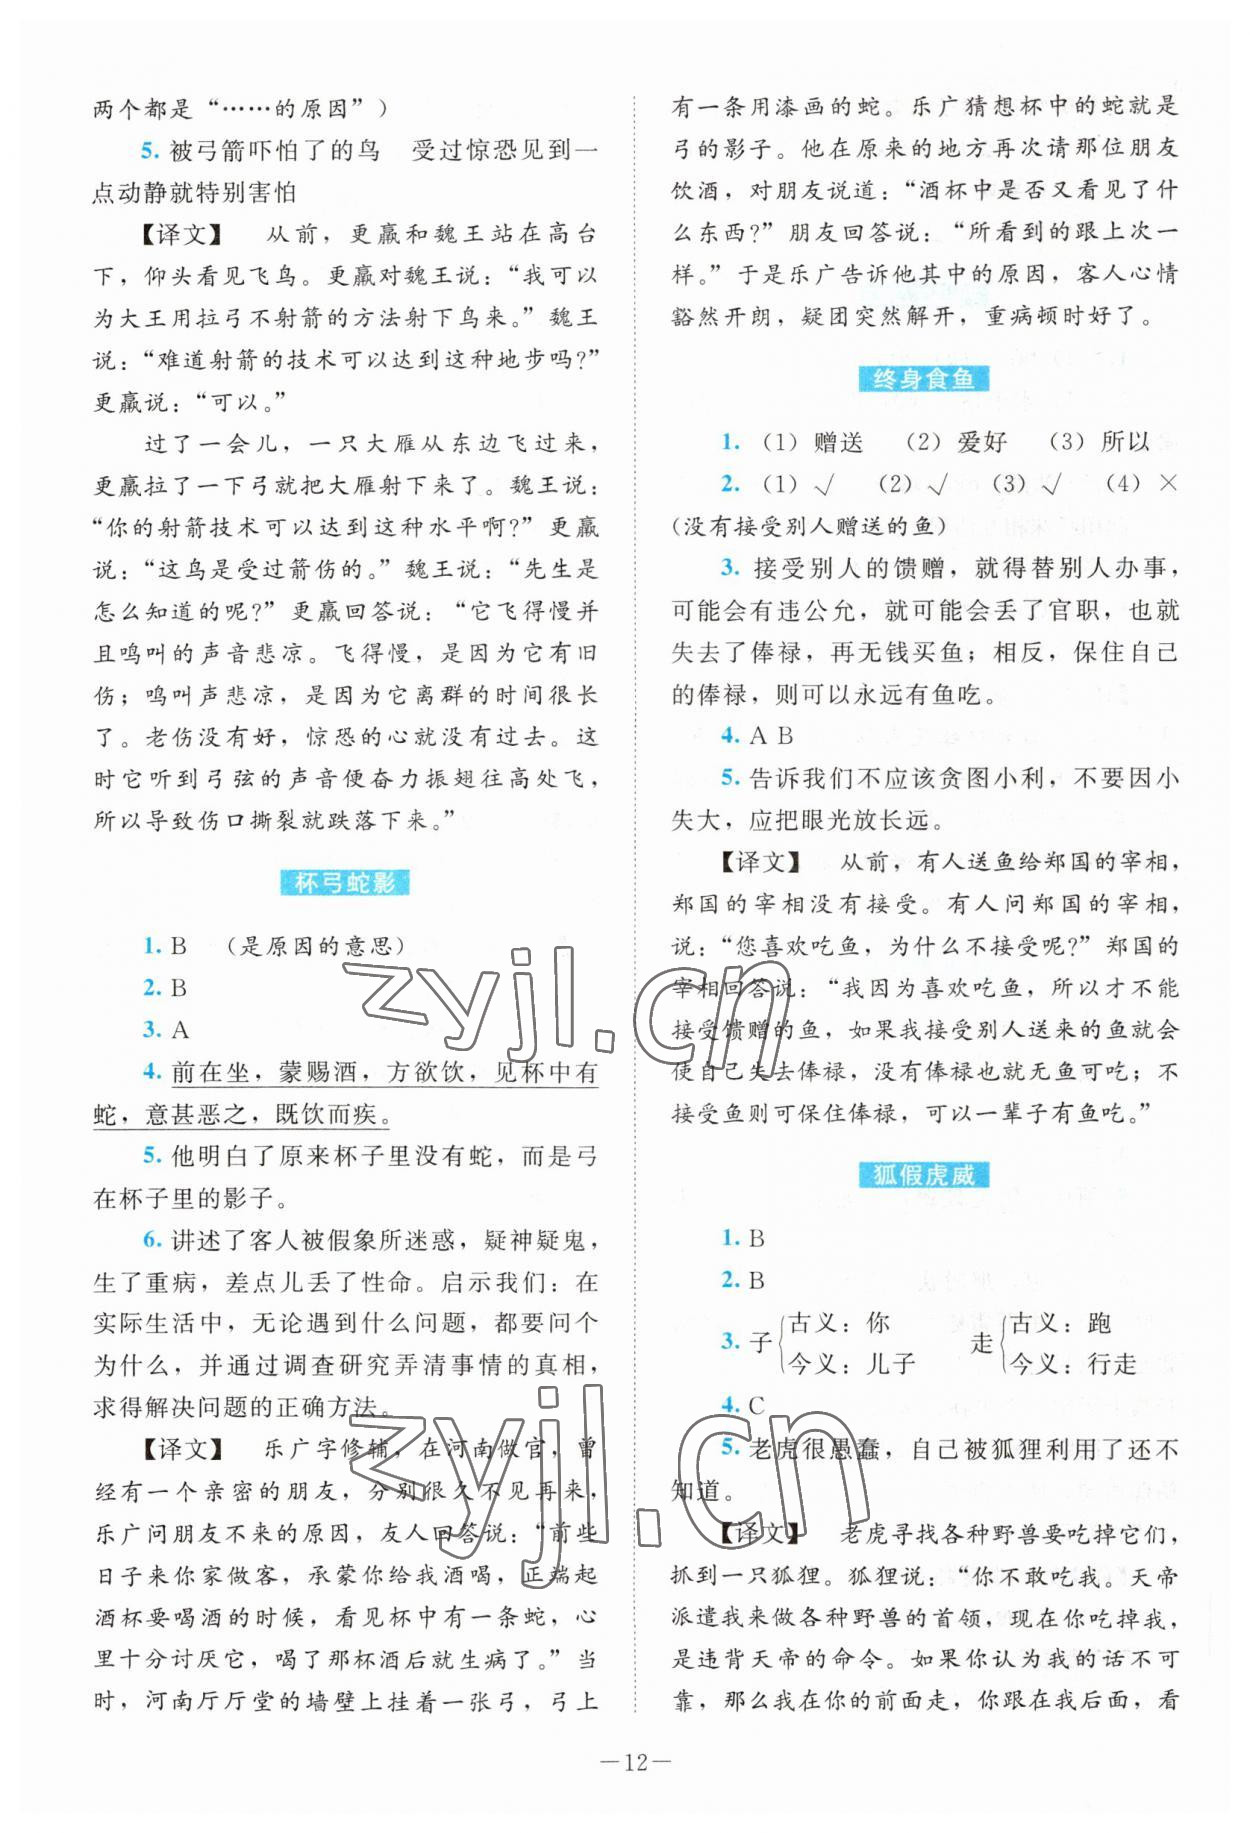 两个都是“……的原因”)
5. 被弓箭吓怕了的鸟　受过惊恐见到一
点动静就特别害怕
【译文】　从前，更羸和魏王站在高台
下，仰头看见飞鸟。更羸对魏王说：“我可以
为大王用拉弓不射箭的方法射下鸟来。”魏王
说：“难道射箭的技术可以达到这种地步吗?”
更羸说：“可以。”
过了一会儿，一只大雁从东边飞过来，
更羸拉了一下弓就把大雁射下来了。魏王说：
“你的射箭技术可以达到这种水平啊?”更羸
说：“这鸟是受过箭伤的。”魏王说：“先生是
怎么知道的呢?”更羸回答说：“它飞得慢并
且鸣叫的声音悲凉。飞得慢，是因为它有旧
伤；鸣叫声悲凉，是因为它离群的时间很长
了。老伤没有好，惊恐的心就没有过去。这
时它听到弓弦的声音便奋力振翅往高处飞，
所以导致伤口撕裂就跌落下来。”
杯弓蛇影
1. B　（是原因的意思）
2. B
3. A
4. 前在坐，蒙赐酒，方欲饮，见杯中有
蛇，意甚恶之，既饮而疾。
5. 他明白了原来杯子里没有蛇，而是弓
在杯子里的影子。
6. 讲述了客人被假象所迷惑，疑神疑鬼，
生了重病，差点儿丢了性命。启示我们：在
实际生活中，无论遇到什么问题，都要问个
为什么，并通过调查研究弄清事情的真相，
求得解决问题的正确方法。
【译文】　乐广字修辅，在河南做官，曾
经有一个亲密的朋友，分别很久不见再来，
乐广问朋友不来的原因，友人回答说：“前些
日子来你家做客，承蒙你给我酒喝，正端起
酒杯要喝酒的时候，看见杯中有一条蛇，心
里十分讨厌它，喝了那杯酒后就生病了。”当
时，河南厅厅堂的墙壁上挂着一张弓，弓上
有一条用漆画的蛇。乐广猜想杯中的蛇就是
弓的影子。他在原来的地方再次请那位朋友
饮酒，对朋友说道：“酒杯中是否又看见了什
么东西?”朋友回答说：“所看到的跟上次一
样。”于是乐广告诉他其中的原因，客人心情
豁然开朗，疑团突然解开，重病顿时好了。
终身食鱼
1.（1）赠送　（2）爱好　（3）所以
2.（1）√　（2）√　（3）√　（4）×
(没有接受别人赠送的鱼)
3. 接受别人的馈赠，就得替别人办事，
可能会有违公允，就可能会丢了官职，也就
失去了俸禄，再无钱买鱼；相反，保住自己
的俸禄，则可以永远有鱼吃。
4. A B
5. 告诉我们不应该贪图小利，不要因小
失大，应把眼光放长远。
【译文】　从前，有人送鱼给郑国的宰相，
郑国的宰相没有接受。有人问郑国的宰相，
说：“您喜欢吃鱼，为什么不接受呢?”郑国的
宰相回答说：“我因为喜欢吃鱼，所以才不能
接受馈赠的鱼，如果我接受别人送来的鱼就会
使自己失去俸禄，没有俸禄也就无鱼可吃；不
接受鱼则可保住俸禄，可以一辈子有鱼吃。”
狐假虎威
1. B
2. B
3. 子{古义：你　今义：儿子　走{古义：跑　今义：行走
4. C
5. 老虎很愚蠢，自己被狐狸利用了还不
知道。
【译文】　老虎寻找各种野兽要吃掉它们，
抓到一只狐狸。狐狸说：“你不敢吃我。天帝
派遣我来做各种野兽的首领，现在你吃掉我，
是违背天帝的命令。如果你认为我的话不可
靠，那么我在你的前面走，你跟在我后面，看
—12—
zyjl.cn
zyjl.cn